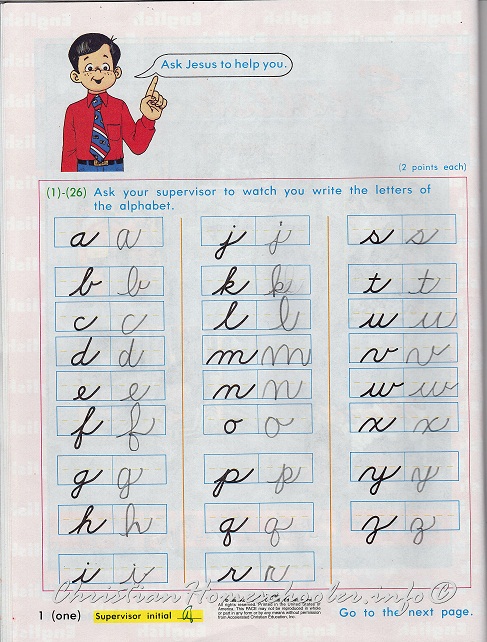 Ask Jesus to help you.
(2 points each)
(1)-(26) Ask your supervisor to watch you write the letters of
the alphabet.
a a j j s s
b b k k t t
c c l l u u
d d m m v v
e e n n w w
f f o o x x
g g p p y y
h h q q z z
i i r r
ChristianHomeschooler.info ©
All rights reserved. Printed in the United States of
America. This PACE may not be reproduced in whole
or part in any form or by any means without permission
from Accelerated Christian Education, Inc.
1 (one) Supervisor initial Go to the next page.